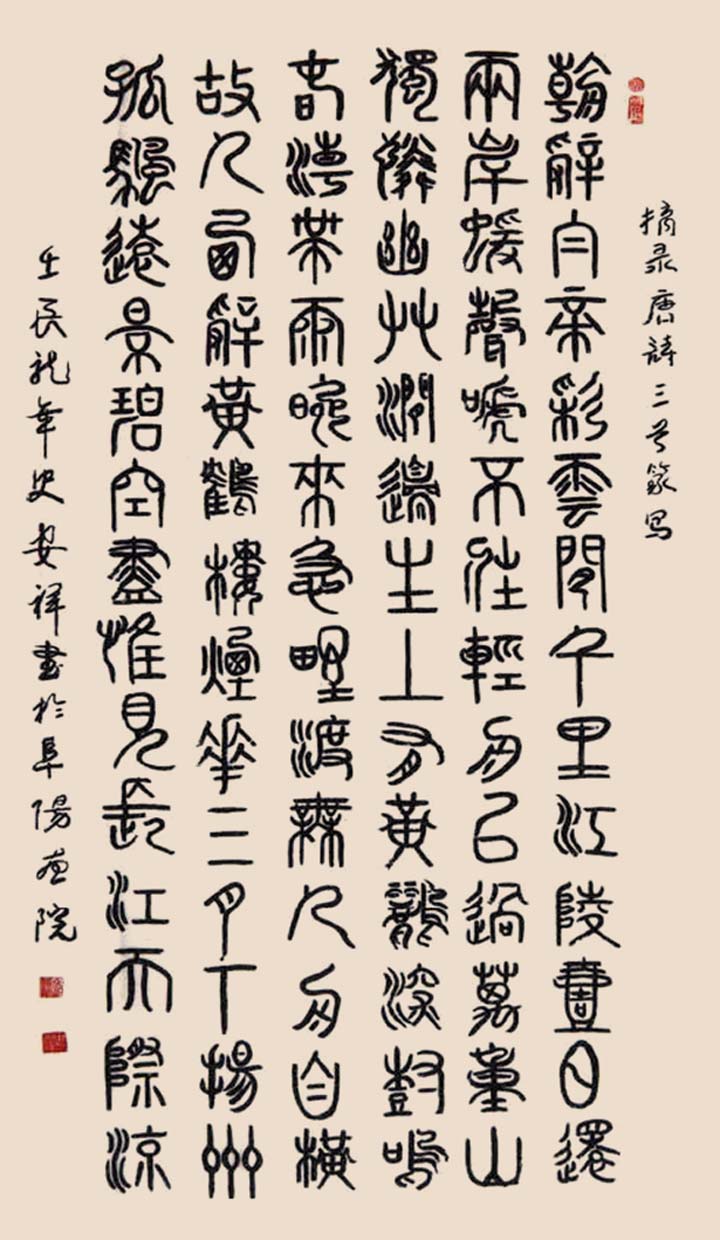 摘录唐詩三首篆写
朝辭白帝彩雲間千里江陵壹日還
兩岸蝯聲嗁不住輕舟已過萬重山
獨憐幽艸澗邊生上有黃鸝深樹鳴
春潮帶雨晚來急野渡無人舟自橫
故人西辭黃鶴樓煙華三月下揚州
孤颿遠景碧空盡惟見長江天際流
壬辰龍年史安祥書於阜陽畫院